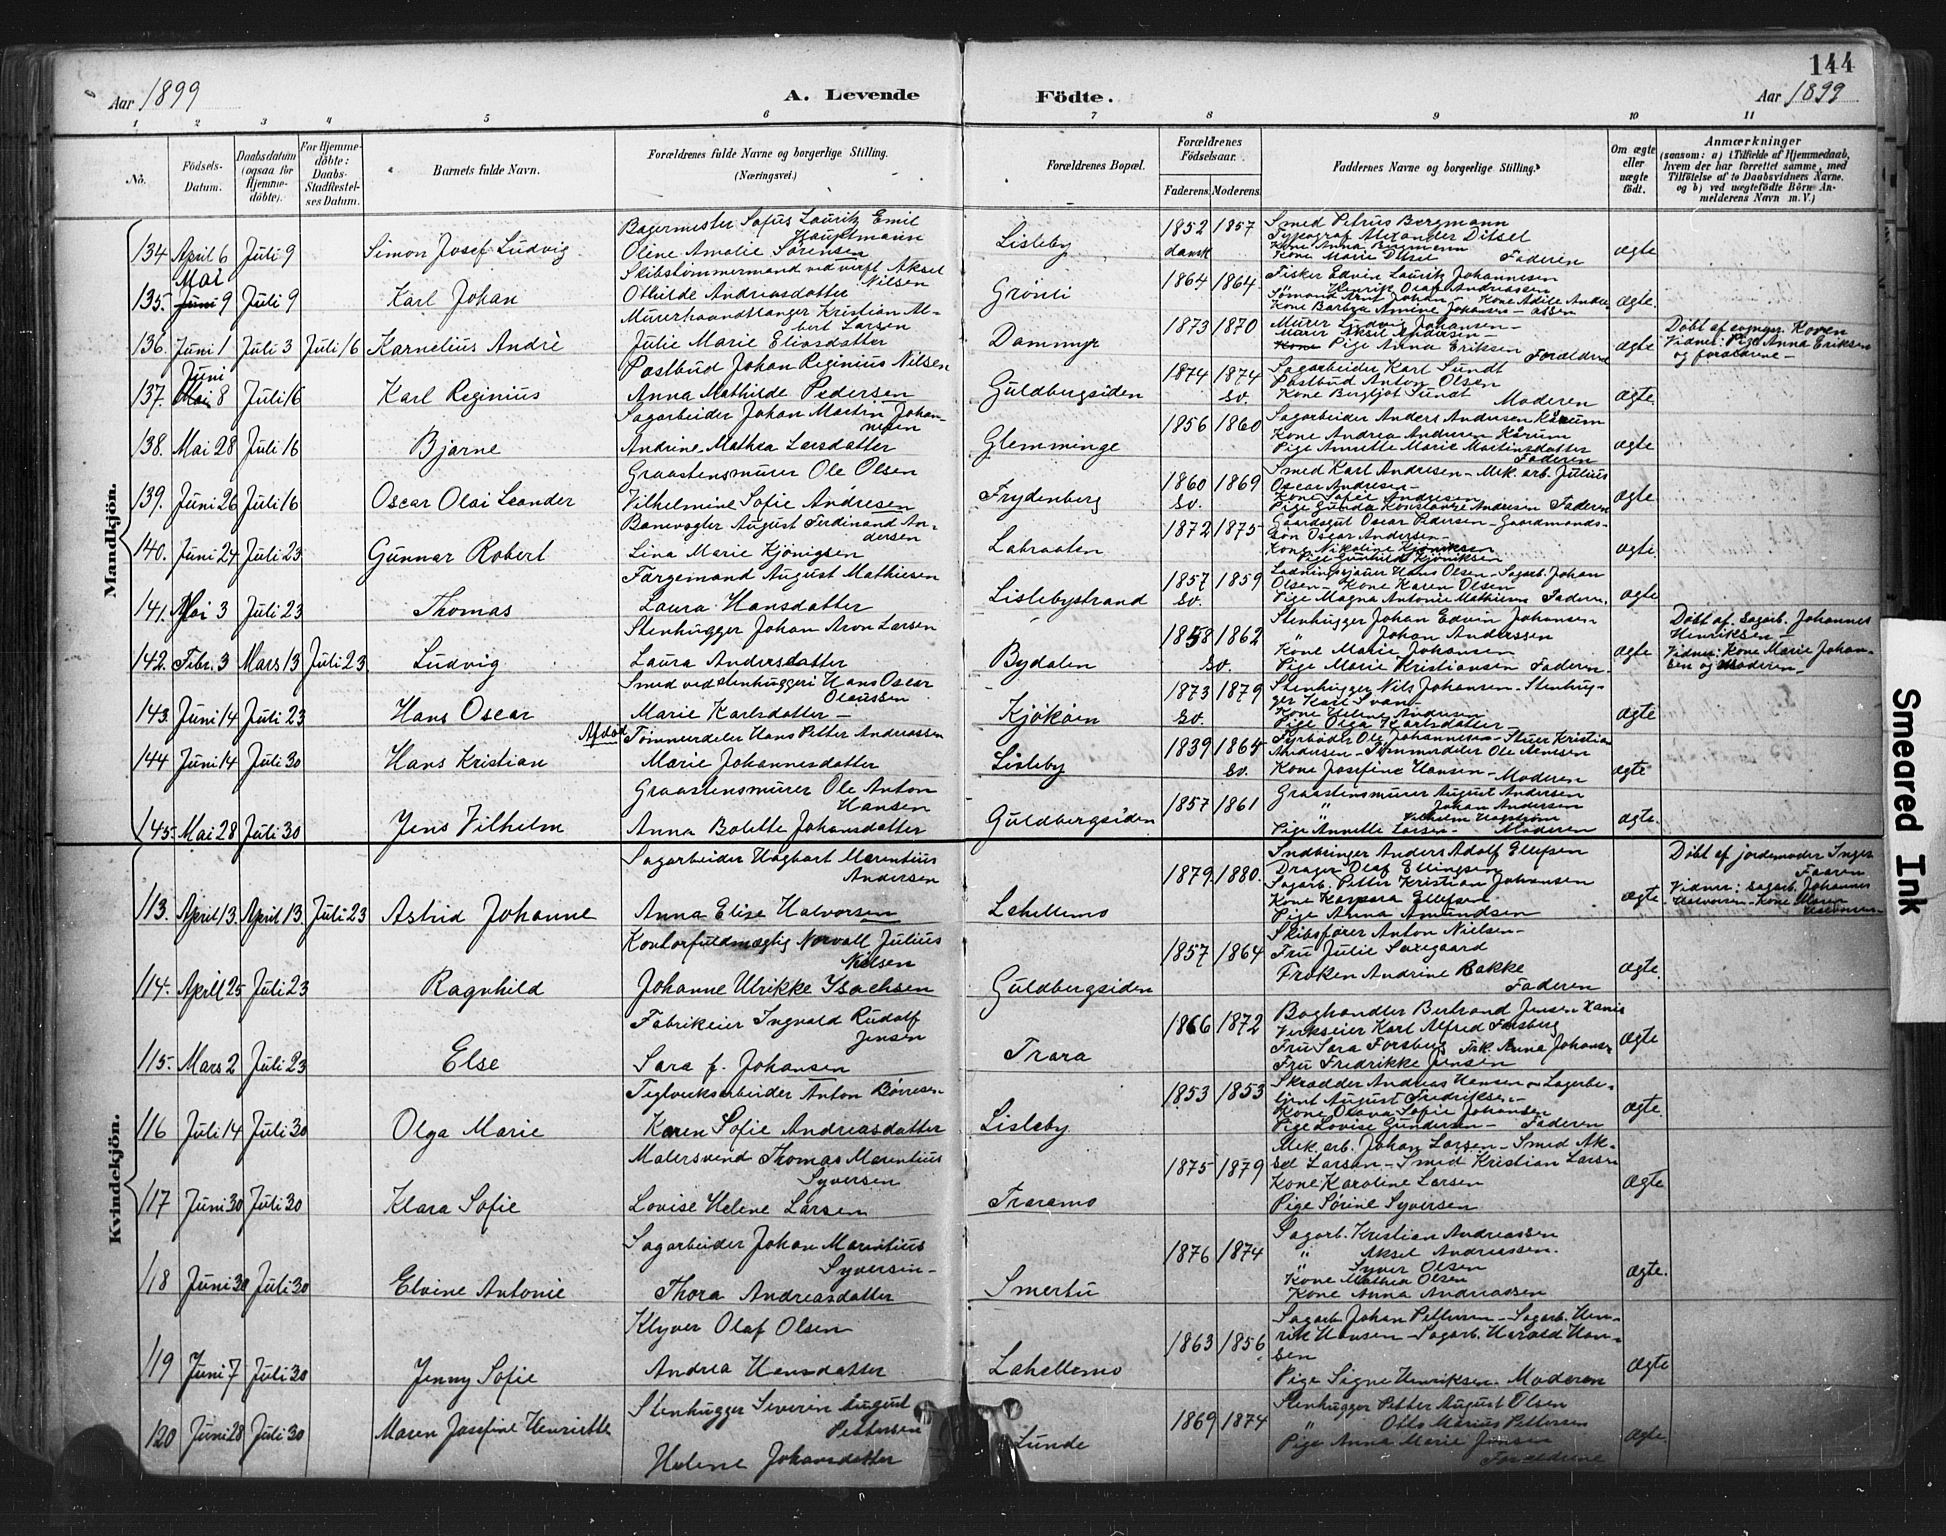 144
Aar 1899
A. Levende Födte.
Aar 1899
1 2 3 4 5 6 7 8 9 10 11
No.
Födsels-Datum.
Daabsdatum (ogsaa for Hjemme-döbte).
For Hjemme-döbte: Daabs-Stadfæstel-ses Datum.
Barnets fulde Navn.
Forældrenes fulde Navne og borgerlige Stilling. (Næringsvei.)
Forældrenes Bopæl.
Forældrenes Födselsaar.
Faderens. Moderens.
Faddernes Navne og borgerlige Stilling.
Om ægte eller uægte födt.
Anmærkninger
(saasom: a) i Tilfælde af Hjemmedaab,
hvem der har forrettet samme, med
Tilföielse af to Daabsvidners Navne,
og b) ved uægtefödte Börn An-
melderens Navn m. V.)
Mandkjön.
134 April 6 Juli 9 Simon Josef Ludvig
Bagermester Sofus Lauritz Emil
Hauptmann
Oline Amalie Sörensen
Lisleby
1852 1857
dansk
Smed Petrus Bergmann
Typograf Alexander Ditsel
Kone Anna Bergmann
Kone Marie Ditsel Faderen
ægte
135. Mai
Juni 9 Juli 9 Karl Johan
Skibstömmermand ved verft Aksel
Nilsen
Othilde Andreasdatter
Grönli
1864 1864
Fisker Edvin Lauritz Johannesen
Henrik Olaf Andreassen
Sömand Arnt Johan - Kone Adile Andre-
assen
ægte.
136. Juni 1 Juli 3 Juli 16 Karnelius Andrè
Murerhaandtlanger Kristian Al-
bert Larsen
Julie Marie Eliasdatter
Dammyr
1873 1870
Murer Ludvig Johansen -
Murer Aksel Andersen -
Kone Pige Anna Eriksen Forældrene
ægte
Döbt af sogngpr. Koren
Vidner: Pige Anna Eriksen
og forældrene -
137. Juni
Mai 8 Juli 16 Karl Reginius
Postbud Johan Reginius Nilsen
Anna Mathilde Pedersen
Guldbergsiden
1874 1874
sv.
Sagarbeider Karl Sundt
Postbud Anton Olsen
Kone Bergljot Sundt Moderen
ægte.
138. Mai 28 Juli 16 Bjarne
Sagarbeider Johan Martin Johan-
nesen
Andrine Mathea Larsdatter
Glemminge
1856 1860
Sagarbeider Anders Andersen Kårum
Kone Andrea Andersen Kårum
Pige Annette Marie Martinsdatter
Faderen
ægte
139. Juni 26 Juli 16 Oscar Olai Leander
Graastensmurer Ole Olsen
Vilhelmine Sofie Andresen
Frydenberg
1860 1869
sv.
Smed Karl Andresen - Mek. arb. Julius
Oscar Andresen -
Kone Sofie Andresen
Pige Gunda Konstance Andersen Faderen
ægte
140. Juni 24 Juli 23 Gunnar Robert
Banevogter August Ferdinand An-
dersen
Lina Marie Kjönigsen
Labraaten
1872 1875
Gaardsgut Oscar Pedersen - Gaardmands-
sön Oscar Andersen -
Kone Nikoline Kjöniksen
Pige Gunhild Kjöniksen
ægte.
141. Mai 3 Juli 23 Thomas
Færgemand August Mathiesen
Laura Hansdatter
Lislebystrand
1857 1859
sv.
Hans Olsen - Sagarb. Johan
Olsen - Kone Karen Olsen
Pige Magna Antonie Mathiesen Faderen.
ægte
142. Febr. 3 Mars 13 Juli 23 Ludvig
Stenhugger Johan Aron Larsen
Laura Andersdatter
Bydalen
1858 1862
sv.
Stenhugger Johan Edvin Johansen
" Johan Anderssen
Kone Marie Johansen
Pige Marie Kristiansen Faderen
ægte
Döbt af Sagarb. Johannes
Henriksen -
Vidner: Kone Marie Johan-
sen og Moderen -
143. Juni 14 Juli 23 Hans Oscar
Smed ved stenhuggeri Hans Oscar
Olaussen
Marie Karlsdatter -
Kjököen
1873 1879
sv.
Stenhugger Nils Johansen - Stenhug-
ger Karl Svan -
Kone Helene Andersen
Pige Olga Karlsdatter -
ægte
144 Juni 14 Juli 30 Hans Kristian
Afdöd Tömmerdeler Hans Petter Andreassen
Marie Johannesdatter
Lisleby
1839 1865
sv.
Fyrböder Ole Johannesen - Stuer Kristian
Andersen - Tömmerdeler Ole Hansen
Kone Josefine Hansen - Moderen
ægte
145. Mai 28 Juli 30 Jens Vilhelm
Graastensmurer Ole Anton
Hansen
Anna Bolette Johansdatter
Guldbergsiden
1857 1861
Graastensmurer August Andersen
" Johan Andersen
" Vilhelm Hagström
Pige Annette Larsen - Moderen
ægte.
Kvindekjön.
113. April 13. April 13 Juli 23 Astrid Johanne
Sagarbeider Hagbart Marentius
Andersen
Anna Elise Halvorsen
Lahellemo
1879. 1880.
Sndbringer Anders Adolf Ellefsen
Drager Olaf Ellingsen
Sagarb. Petter Kristian Johansen
Kone Kaspara Ellefsen
Pige Anna Amundsen
ægte
Döbt af jordemoder Inger
Faaren
Vidner: Sagarb. Johannes
Halvorsen - Kone Maren
Halvorsen -
114. April 25 Juli 23 Ragnhild
Kontorfuldmægtig Norvall Julius
Nielsen
Johanne Ulrikke Isachsen
Guldbergsiden
1857 1864
Skibsförer Anton Nielsen -
Fru Julie Saxegaard
Fröken Andrine Bakke
Faderen
ægte.
115. Mars 2 Juli 23 Else
Fabrikeier Ingvald Rudolf
Jensen
Sara f. Johansen
Trara
1866 1872
Boghandler Bertrand Jensen Xania
Verkseier Karl Alfred Forsberg
Fru Sara Forsberg Frk. Anna Johanse-
Fru Fredrikke Jensen
ægte
116 Juli 14 Juli 30 Olga Marie
Teglverksarbeider Anton Börresen
Karen Sofie Andreasdatter
Lisleby
1853 1853
Skrædder Andreas Hansen - Lagerbe-
tjent August Fredriksen -
Kone Olava Sofie Johansen
Pige Lovise Gundersen - Faderen
ægte.
117 Juni 30 Juli 30 Klara Sofie
Malersvend Thomas Marentius
Syversen
Lovise Helene Larsen
Traramo
1875 1879
Mek. arb. Johan Larsen - Smed Ak-
sel Larsen - Smed Kristian Larsen
Kone Karoline Larsen
Pige Sörine Syversen
ægte
118 Juni 30 Juli 30 Elvine Antonie
Sagarbeider Johan Marentius
Syversen -
Thora Andreasdatter
Smertu
1876 1874
Sagarb. Kristian Andreassen
" Aksel Andreassen.
" Syver Olsen
Kone Mathea Olsen
Kone Anna Andreassen
ægte.
119 Juni 7 Juli 30 Jenny Sofie
Klyver Olaf Olsen
Andrea Hansdatter
Lahellemo
1863 1856
Sagarb. Johan Pettersen - Sagarb. Hen-
rik Hansen - Sagarb. Harald Han-
sen
Pige Signe Henriksen - Moderen
ægte
120 Juni 28 Juli 30 Maren Josefine Henriette
Stenhugger Severin August
Pettersen
Helene Johansdatter
Lunde
1869 1874
Stenhugger Petter August Olsen
" Otto Marius Pettersen
Pige Anna Marie Jensen
Forældrene
ægte
Smeared Ink